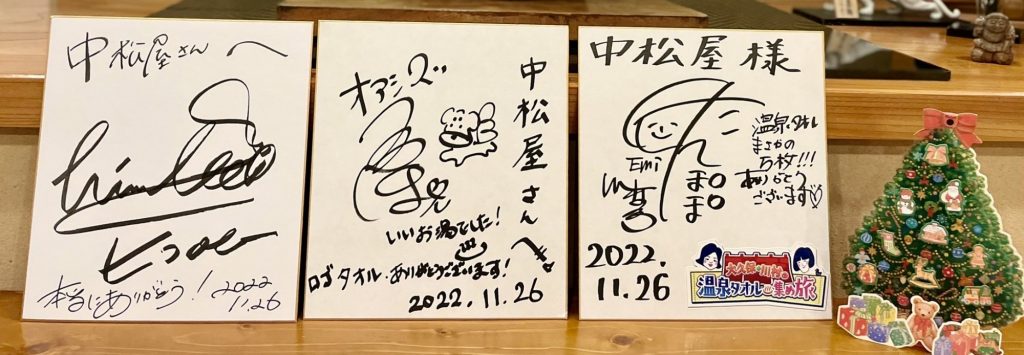 中松屋さんへ
ヒコロヒー
本当にありがとう!
2022
11.26
中松屋さんへ
オアシズ
いいお湯でした!
ロゴタオル、ありがとうございます!
2022.11.26
中松屋様
たんぽぽ
Emi
川村
温泉タオル
まさかの
万枚!!!
ありがとう
ございます♡
2022.
11.26
大久保・川村の
温泉タオル集め旅